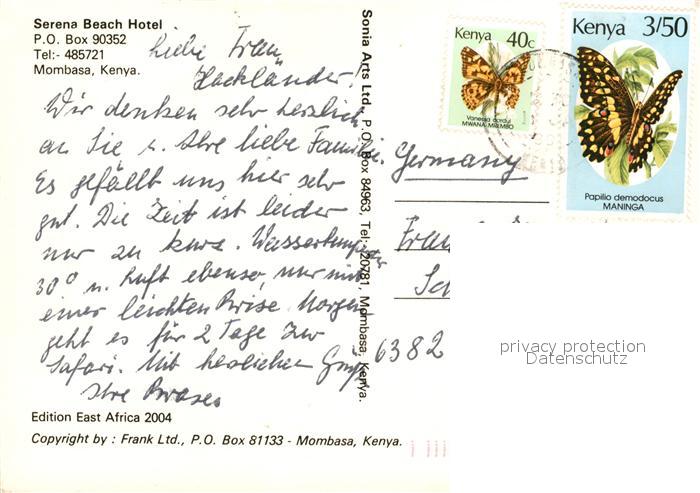 Serena Beach Hotel
P.O. Box 90352
Tel:- 485721
Mombasa, Kenya.
Liebe Frau
Hackländer,
Wir denken sehr herzlich
an Sie u. Ihre liebe Familie.
Es gefällt uns hier sehr
gut. Die Zeit ist leider
nur zu kurz. Wassertemperatur
30° u. Luft ebenso, nur mit
einer leichten Brise. Morgen
geht es für 2 Tage zur
Safari. Mit herzlichen Grüßen
Ihre
Edition East Africa 2004
Copyright by : Frank Ltd., P.O. Box 81133 - Mombasa, Kenya.
Sonia Arts Ltd., P.O. Box 84963, Tel: 20781, Mombasa, Kenya.
Kenya 40c
Vanessa cardui
MWANA-MREMBO
Kenya 3/50
Papilio demodocus
MANINGA
Germany
Frau
6382
privacy protection
Datenschutz